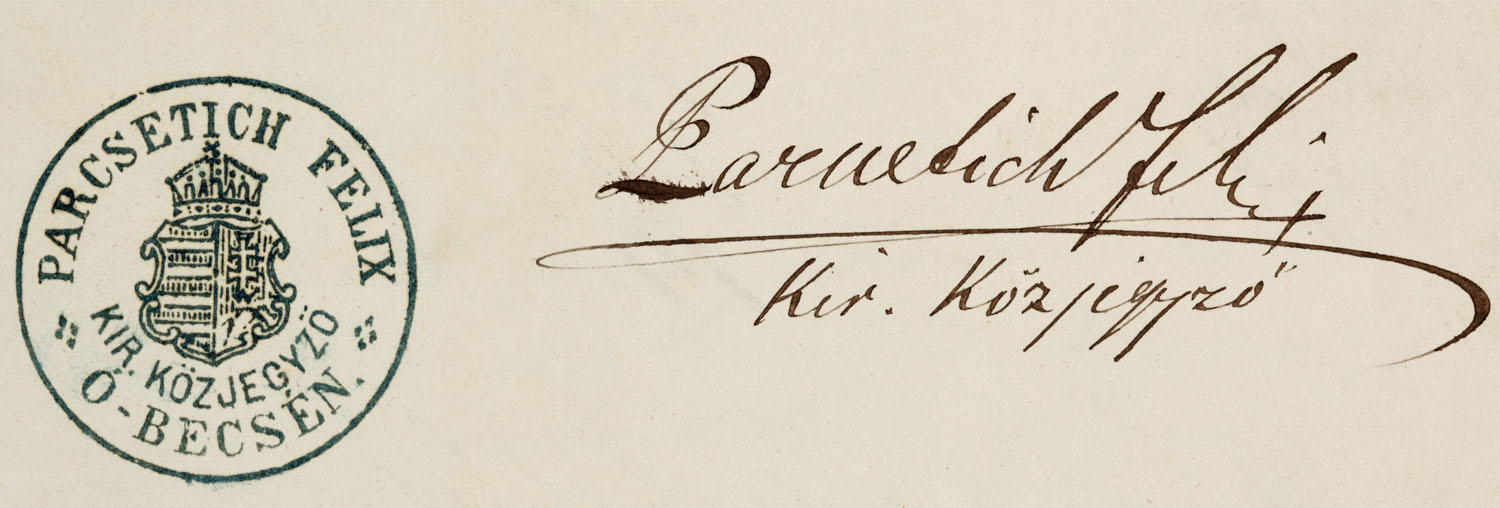 PARCSETICH FELIX
KIR. KÖZJEGYZÖ
Ó-BECSÉN.
Parcsetich Felix
Kir. Közjegyző